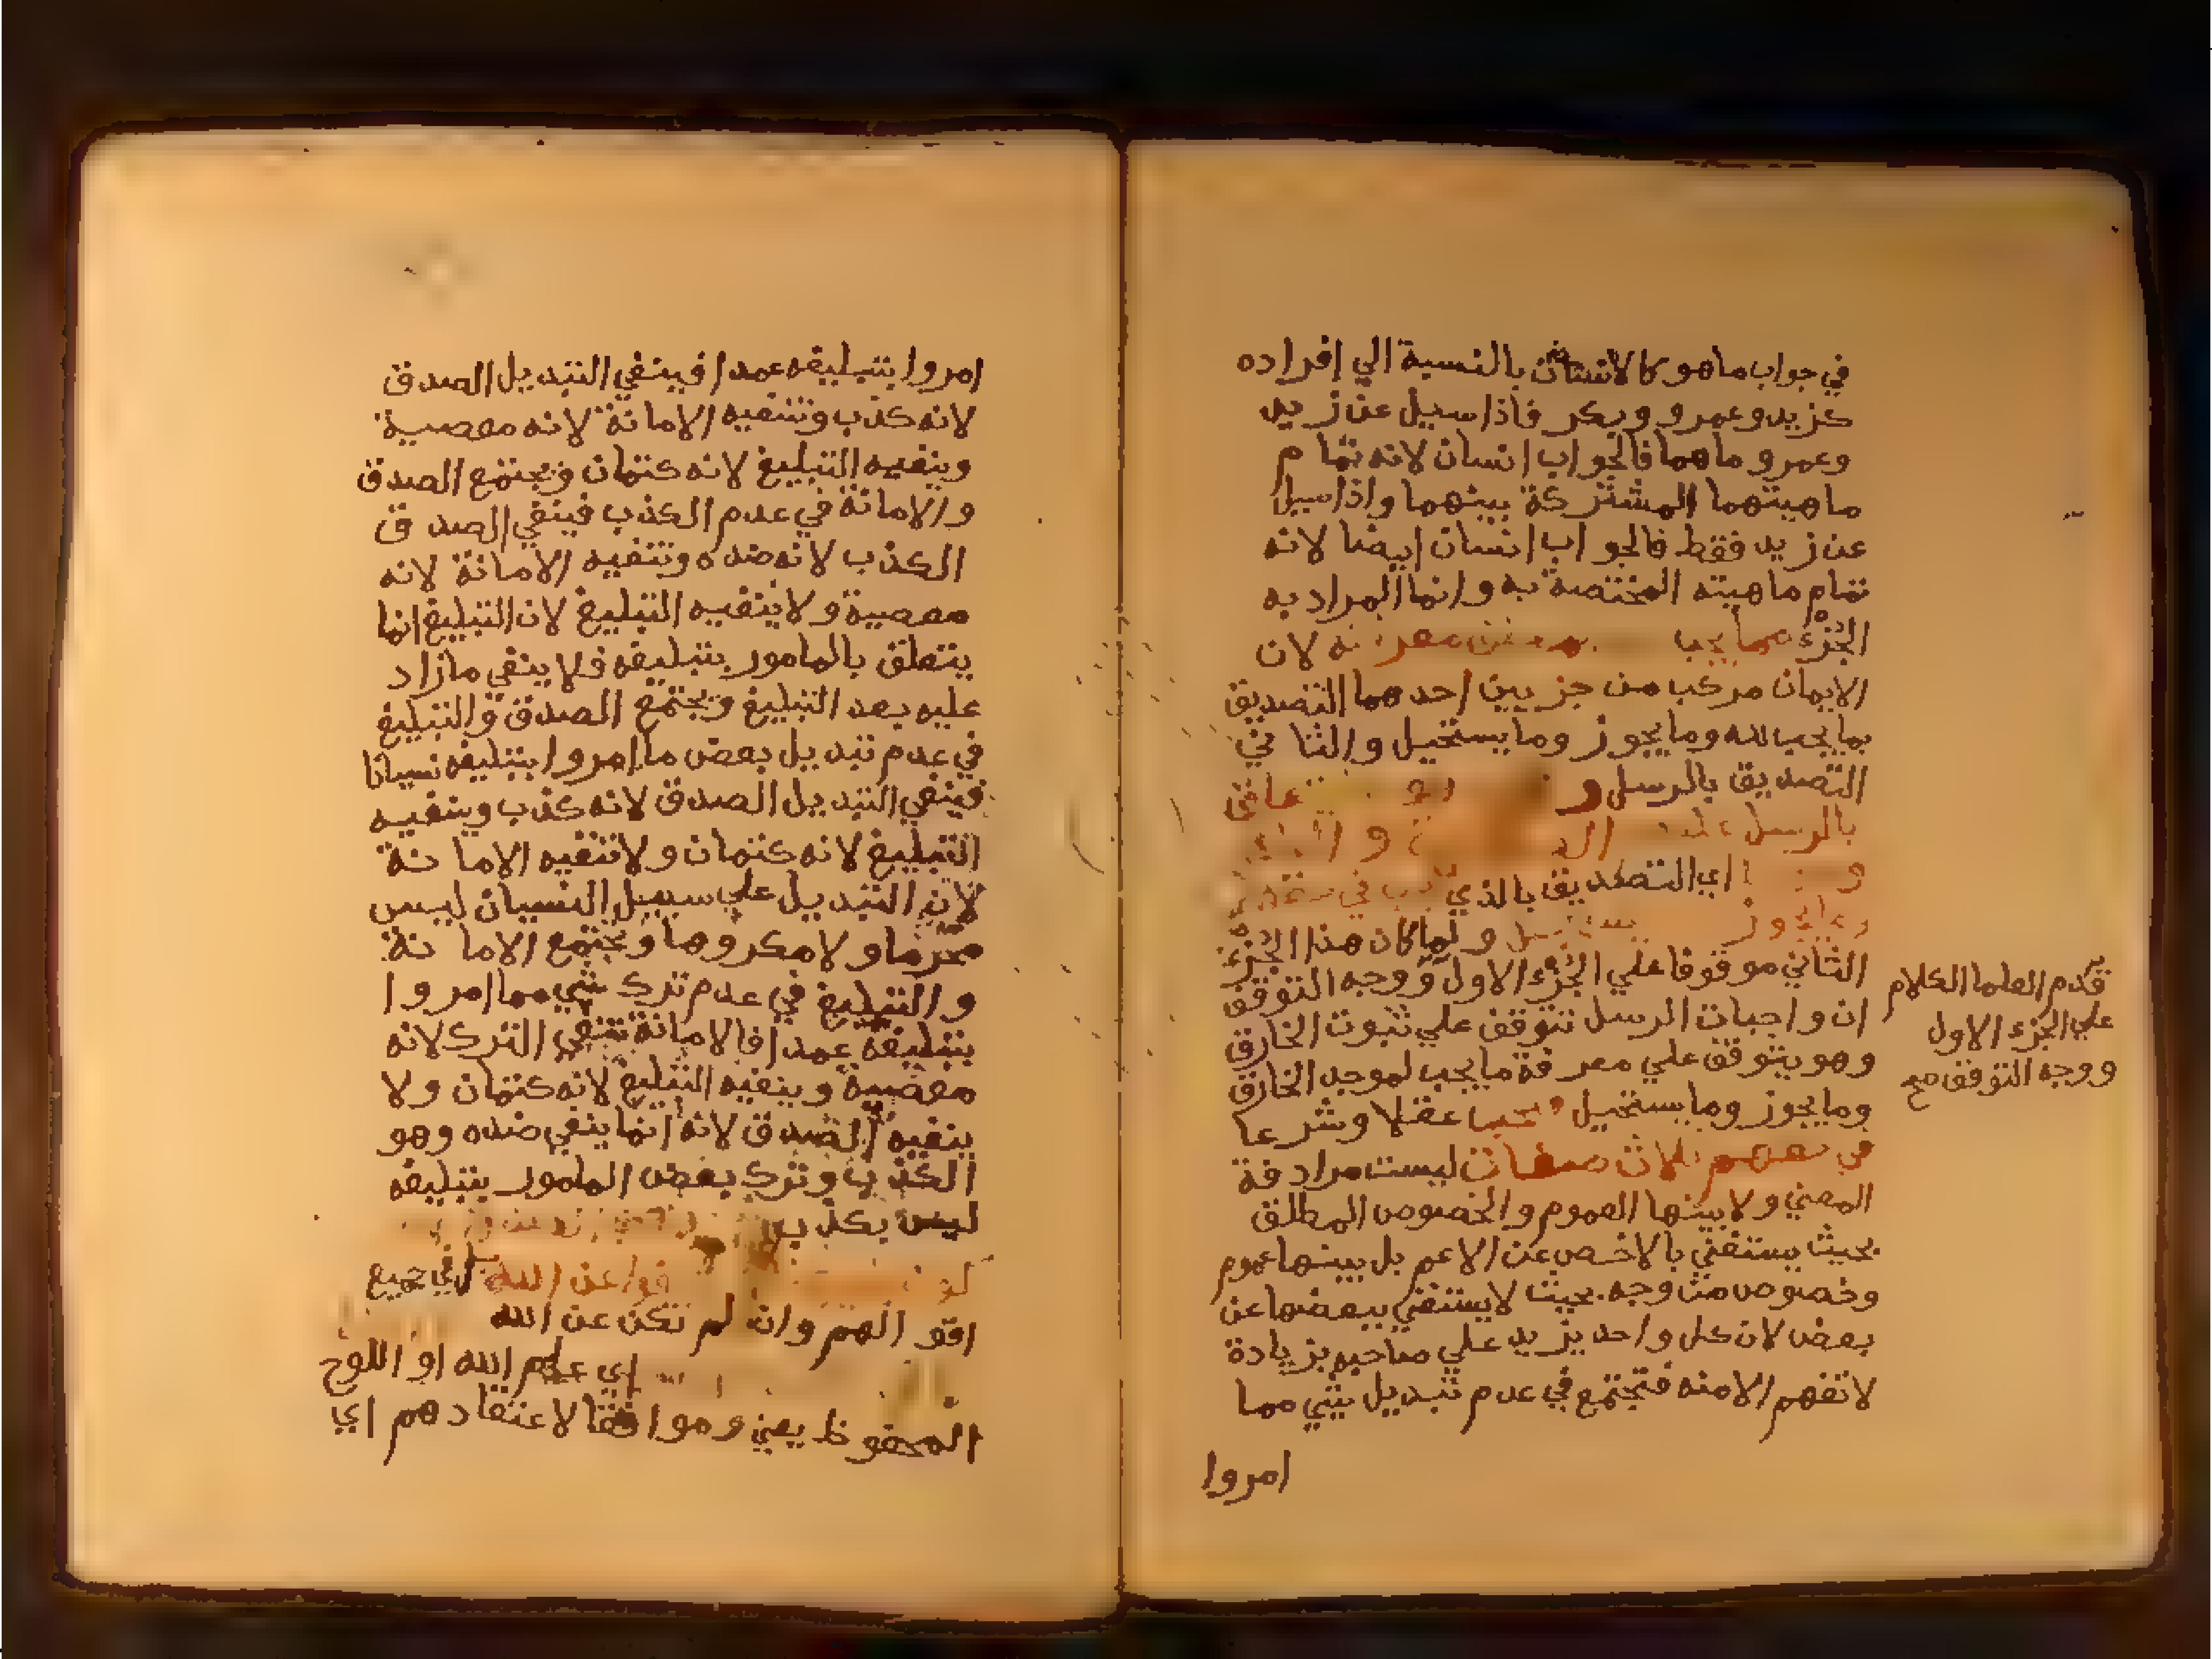 في جواب ماهو كالانسان بالنسبة الي افراده
كزيد وعمرو وبكر فاذا سيل عن زيد
وعمرو ماهما فالجواب انسان لانه تمام
ماهيتهما المشتركة بينهما واذا سيل
عن زيد فقط فالجواب انسان ايضا لانه
تمام ماهيته المختصة به وانما المراد به
الجزء مما يجب لان
الايمان مركب من جزيين احدهما التصديق
بما يجب لله وما يجوز وما يستحيل والثاني
التصديق بالرسل و
بالرسل
و اي التصديق بالذي
ولما كان هذا الجزء
الثاني موقوفا علي الجزء الاول ووجه التوقف
ان واجبات الرسل تتوقف علي ثبوت الخارق
وهو يتوقف علي معرفة ما يجب لموجد الخارق
وما يجوز وما يستحيل عقلا وشرعا
في حقهم ثلاث صفات ليست مرادفة
المعني ولا بينها العموم والخصوص المطلق
بحيث يستغني بالاخص عن الاعم بل بينها عموم
وخصوص من وجه بحيث لا يستغني ببعضها عن
بعض لان كل واحد يزيد علي صاحبه بزيادة
لا تفهم الا منه فتجتمع في عدم تبديل شي مما
امروا
قدم العلما الكلام
علي الجزء الاول
ووجه التوقف صح
امروا بتبليغه عمدا فينفي التبديل الصدق
لانه كذب وتنفيه الامانة لانه معصية
وينفيه التبليغ لانه كتمان ويجتمع الصدق
والامانة في عدم الكذب فينفي الصدق
الكذب لانه ضده وتنفيه الامانة لانه
معصية ولا ينفيه التبليغ لان التبليغ انما
يتعلق بالمامور بتبليغه فلا ينفي مازاد
عليه بعد التبليغ ويجتمع الصدق والتبليغ
في عدم تبديل بعض ما امروا بتبليغه نسيانا
فينفي التبديل الصدق لانه كذب وينفيه
التبليغ لانه كتمان ولا تنفيه الامانة
لان التبديل علي سبيل النسيان ليس
محرما ولا مكروها ويجتمع الامانة
والتبليغ في عدم ترك شي مما امروا
بتبليغه عمدا فالامانة تنفي الترك لانه
معصية وينفيه التبليغ لانه كتمان ولا
ينفيه الصدق لانه انما ينفي ضده وهو
الكذب وترك بعض المامور بتبليغه
ليس بكذب
عن الله في جميع
اقوالهم وان لم تكن عن الله
اي علم الله او اللوح
المحفوظ يعني وموافقا لاعتقادهم اي